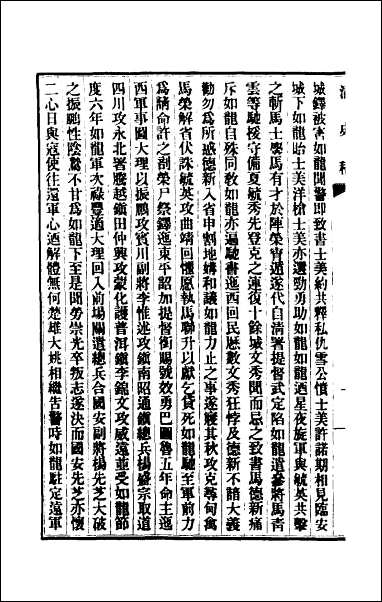 清史稿
城鐸被害如龍聞警卽致書士美約共釋私仇雪公憤士美許諾期相見臨安
城下如龍貽士美洋槍士美亦選勁勇助如龍如龍迺星夜旋軍與毓英共擊
之斬馬士麐馬有才於陣榮宵遁遂代自清署提督武定陷如龍遣參將馬青
雲等馳援守備夏毓秀先登克之連復十餘城文秀聞而忌之致書馬德新痛
斥如龍自殊同敎如龍亦遍馳書迤西回民歷數文秀狂悖及德新不諳大義
勸勿爲所惑德新入省申割地媾和議如龍力止之事遂寢其秋攻克尋甸禽
馬榮解省伏誅毓英攻曲靖回懼愿執馬聯升以獻乞貸死如龍馳至軍前力
爲請命許之剖榮尸祭鐸迤東平詔加提督銜賜號效勇巴圖魯五年命主迤
西軍事圖大理以振鵬攻賓川副將李惟述攻鎮南昭通鎮總兵楊盛宗取道
四川攻永北署騰越鎮田仲興攻蒙化護普洱鎮李錦文攻威遠並受如龍節
度六年如龍軍次祿豐遇大理回入前場關遣總兵合國安副將楊先芝大破
之振鵬性陰鷙不甘爲如龍下至是聞勞崇光卒叛志遂決而國安先芝亦懷
二心日與寇使往還軍心迺解體無何楚雄大姚相繼告警時如龍駐定遠軍